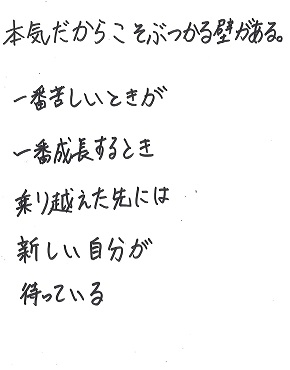 本気だからこそぶつかる壁がある。
一番苦しいときが
一番成長するとき
乗り越えた先には
新しい自分が
待っている